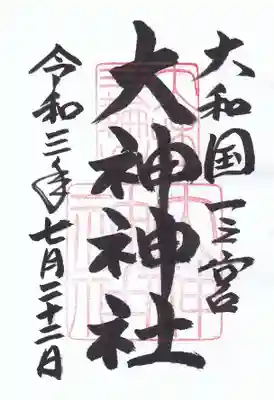 大和国一之宮
大神神社
令和三年七月二十二日